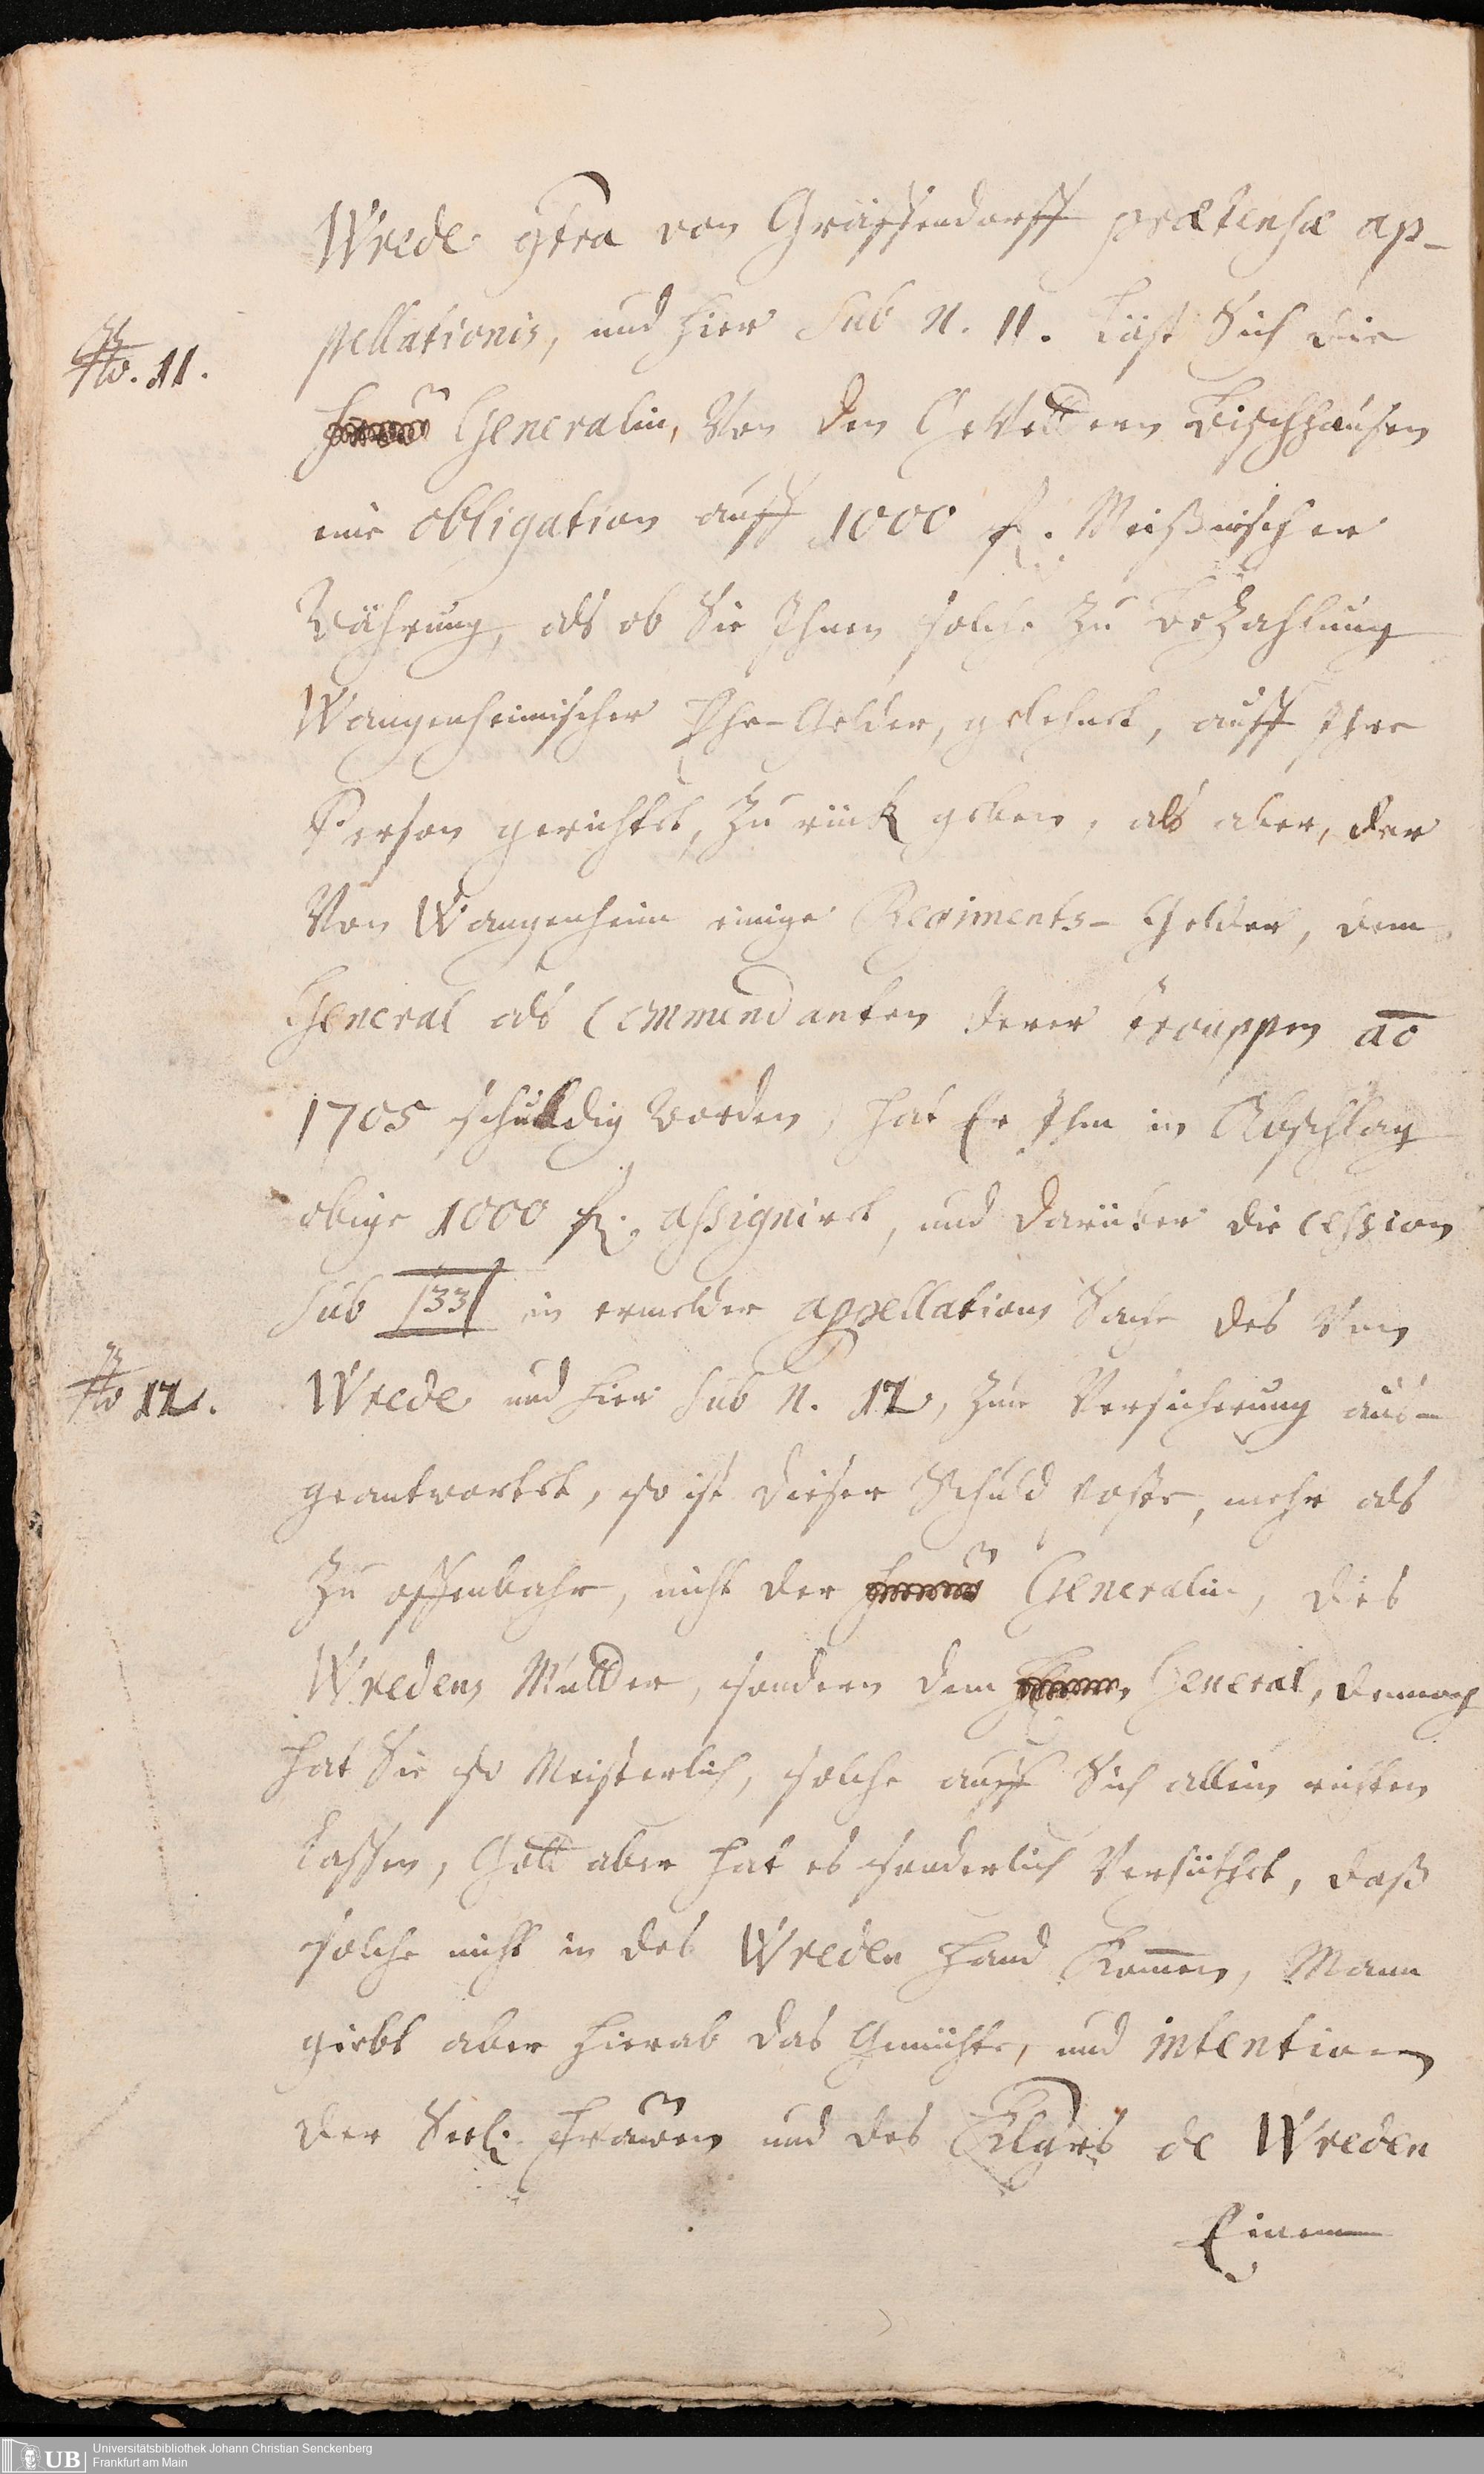 Wrede c̄tra von Gräffendorff prætensæ ap-
pellationis, und hier sub N. 11. Läst Sich die
No. 11.
Generalin, Von den GeVettern Bischhausen
eine obligation auff 1000 f. Meißnischer
Währung, als ob Sie Ihnen solche zu Bezahlung
Wangenheimischer Ehe-Gelder, gelehnet, auff Ihre
Person gerichtet, zurück geben, als aber, der
Von Wangenheim einige Regiments-Gelder, dem
General als Commendanten derer trouppen ao
1705 schuldig worden, hat Er Ihm in Abschlag
obige 1000 f. assigniret, und darüber die cession
sub 133 in ermelder appellations Sache des von
No 12.
Wrede und hier sub N. 12, zur Versicherung aus-
geantwortet, so ist dieser Schuld mehr als
zu offenbahr, nicht der Generalin, des
Wredens Mutter, sondern dem General, dennoch
hat Sie so Meisterlich, solche auff Sich allein richten
Lassen, Gott aber hat es sonderlich Verhütet, daß
solche nicht in des Wreden Hand Kommen, Mann
giebt aber hierab das Gemüthe, und intention
der Seel. Frauen und des Klägers de Wreden
Einem
Universitätsbibliothek Johann Christian Senckenberg
Frankfurt am Main
UB